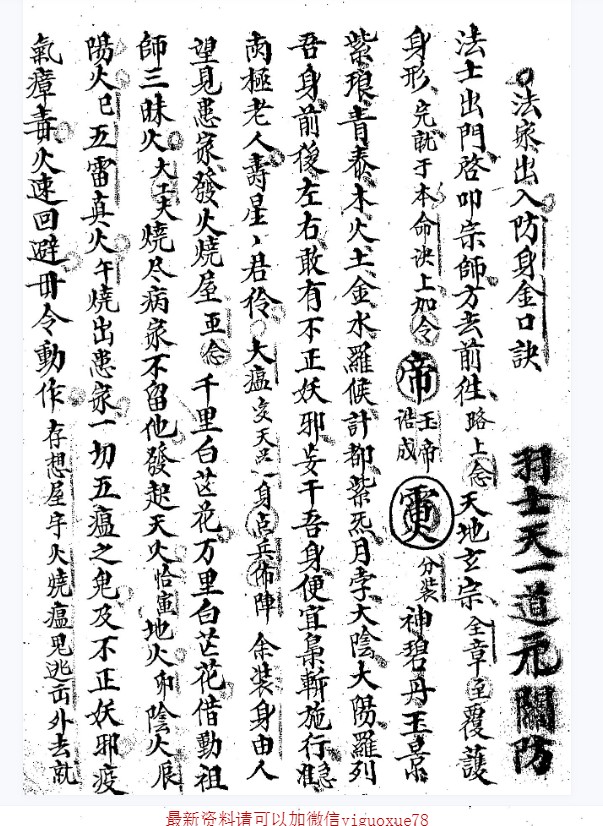 法家出入防身金口訣
羽士天一道元關防
法士出門啓叩宗師方去前往路上念天地玄宗全章至覆護
身形完就于本命訣上加令帝玉帝誥成電火分裝神碧丹玉景
紫琅青泰木火土金水羅候計都紫炁月孛大陰大陽羅列
吾身前後左右敢有不正妖邪妄干吾身便宜梟斬施行准急
南極老人壽星丶君伶大瘟变天一身点兵佈陣余装身由人
望見患家發火燒屋亚念千里白芒花万里白芒花借動祖
師三昧火大燒尽病家不留他發起天火恰寅地火卯陰火辰
陽火巳五雷真火午燒出患家一切五瘟之鬼及不正妖邪疫
氣瘴毒火速回避毋令動作存想屋宇火燒瘟見逃出外去就
最新资料请可以加微信yiguoxue78